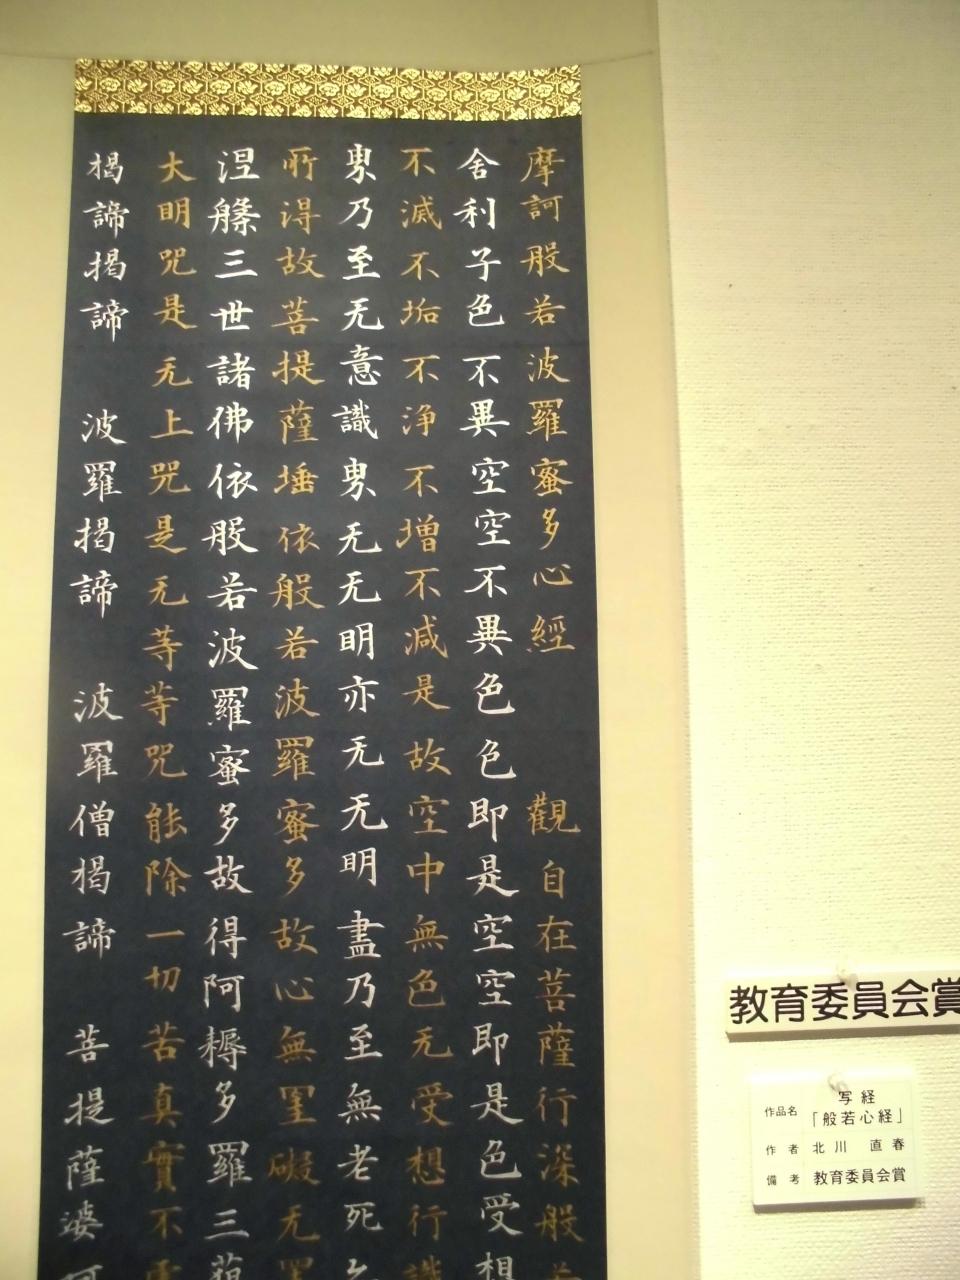 摩訶般若波羅蜜多心經 觀自在菩薩行深般
舍利子色不異空空不異色色即是空空即是色受想
不滅不垢不淨不增不減是故空中無色无受想行識
界乃至无意識界无无明亦无无明盡乃至無老死
所得故菩提薩埵依般若波羅蜜多故心無罣礙无罣
涅槃三世諸佛依般若波羅蜜多故得阿耨多羅三藐
大明咒是无上咒是无等等咒能除一切苦真實不
揭諦揭諦 波羅揭諦 波羅僧揭諦 菩提薩婆
教育委員会賞
作品名 写経「般若心経」
作者 北川 直春
備考 教育委員会賞